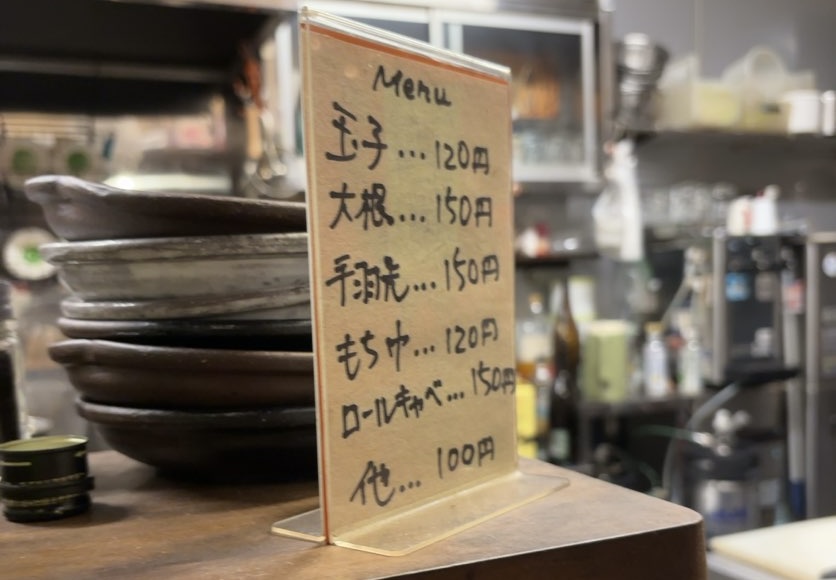 Menu
玉子…120円
大根…150円
手羽先…150円
もち巾…120円
ロールキャベ…150円
他…100円